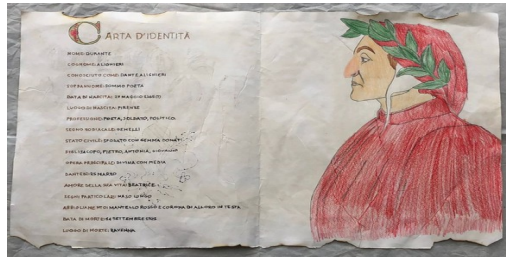 CARTA D'IDENTITÀ
NOME: DURANTE
COGNOME: ALIGHIERI
CONOSCIUTO COME: DANTE ALIGHIERI
SOPRANNOME: SOMMO POETA
DATA DI NASCITA: MAGGIO
LUOGO DI NASCITA: FIRENZE
PROFESSIONE: POETA, SOLDATO, POLITICO
SEGNO ZODIACALE: GEMELLI
STATO CIVILE: SPOSATO CON GEMMA DONATI
FIGLI: JACOPO, PIETRO, ANTONIA, GIOVANNI
OPERA PRINCIPALE: DIVINA COMMEDIA
DANTEDÌ: 25 MARZO
AMORE DELLA SUA VITA: BEATRICE
SEGNI PARTICOLARI: NASO LUNGO
ABBIGLIAMENTO: MANTELLO ROSSO E CORONA DI ALLORO IN TESTA
DATA DI MORTE: 14 SETTEMBRE 1321
LUOGO DI MORTE: RAVENNA